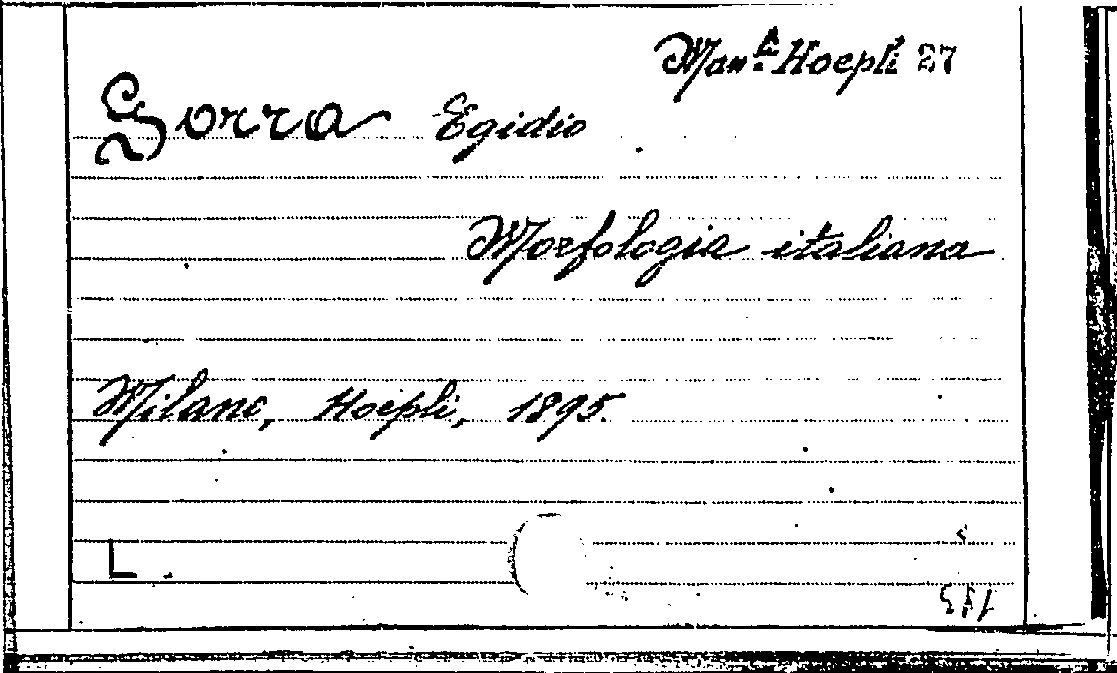 Man.li Hoepli 27
Gorra Egidio
Morfologia italiana
Milano, Hoepli, 1895.
L.